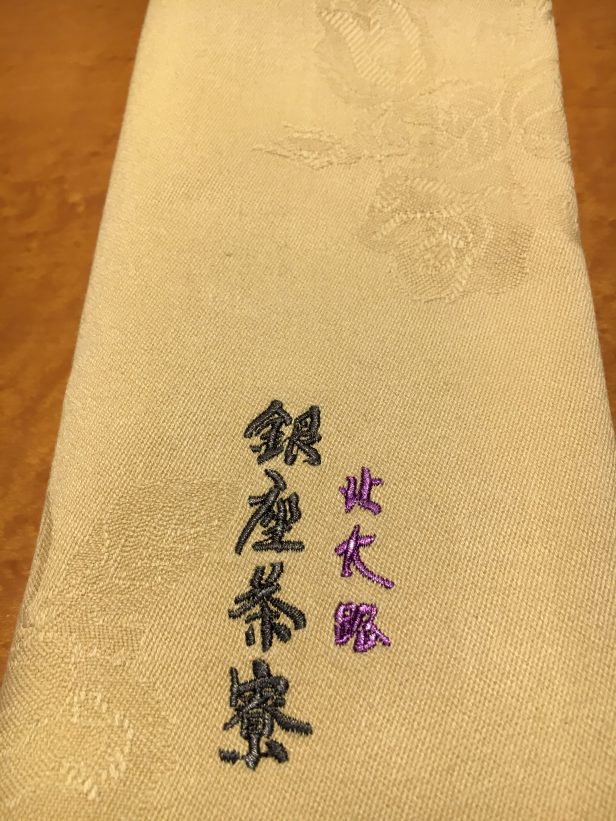 北大路
銀座茶寮